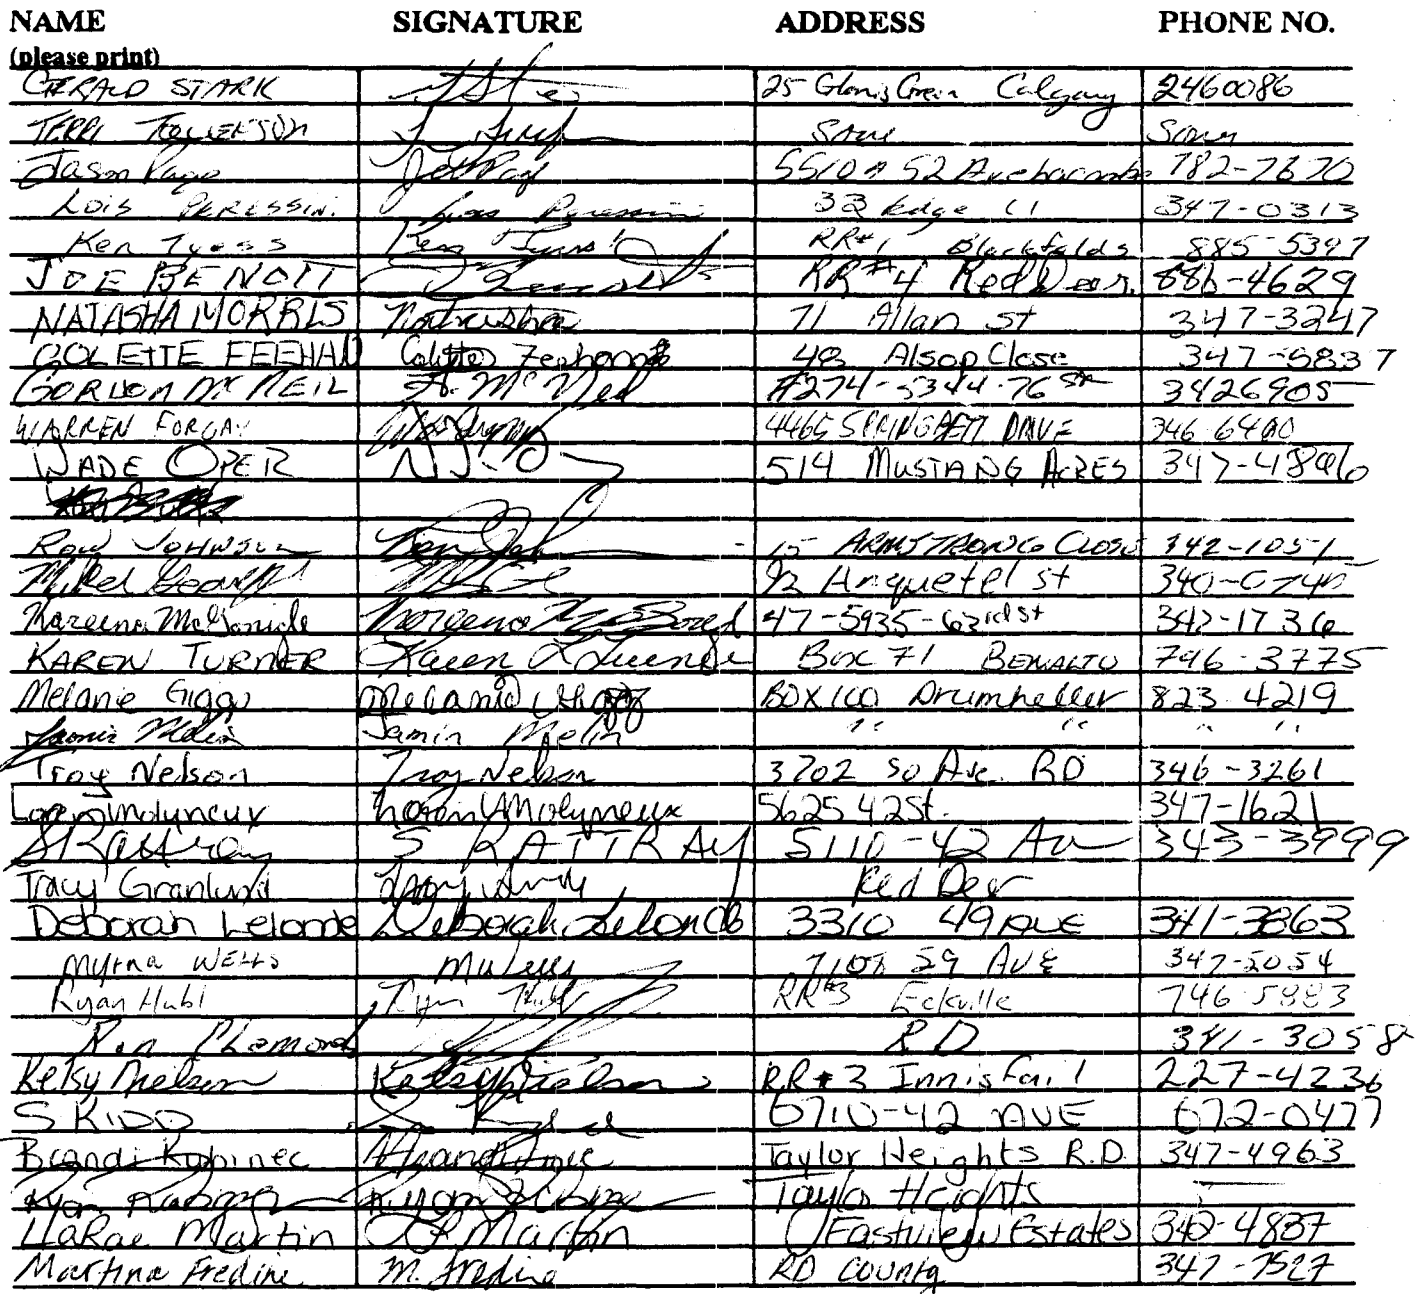 NAME SIGNATURE ADDRESS PHONE NO.
(please print)
GERALD STARK 25 Calgary 2460086
TERRI TOLLEFSON Same Same
Jason Page 5510 A 52 Ave 782-7670
LOIS PERESSINI Lois Peressini 33 347-0313
Ken Tyess RR#1 Blackfalds 885-5397
JOE BENOIT RR#4 Red Deer. 886-4629
NATASHA MORRIS Natasha 71 Allan st 347-3247
COLETTE FEEHAN Colette Feehan 48 Alsop Close 347-5837
GORDON McNEIL G. McNeil #274-5344-76 St 3426905
WARREN FORGAY DRIVE 346 6400
WADE OPER 514 MUSTANG ACRES
RON JOHNSON Ron 15 ARMSTRONG CLOSE 342-1051
92 Anquetel st
Kareena McGonigle Kareena 47-5935-63rd st 342-1736
KAREN TURNER Karen L Turner Box 71 BENALTO 746-3775
Melanie Gigg Melanie Gigg BOX 100 Drumheller 823-4219
Jamin Melin Jamin Melin " " " "
Troy Nelson Troy Nelson 3702 50 Ave. RD 346-3261
Loren Molyneux Loren Molyneux 5625 42 St. 347-1621
S Rattray S RATTRAY 5110-42 Av 343-3999
Tracy Granlund Red Deer
Deborah Lelonde Deborah Lelonde 3310 49 AVE 341-3863
Myrna WELLS 59 AVE 347-2054
Ryan Hubl Ryan Hubl RR#3 Eckville 746-5883
Ron R.D 341-3058
Kelsy Nielsen Kelsy Nielsen RR#3 Innisfail 227-4236
S KIDD 6710-42 AVE 672-0477
Brandi Kabinec Taylor Heights R.D. 347-4963
Ryan Ryan Taylor Heights
LaRae Martin L Martin Eastview Estates 342-4837
Martina Fredine M. Fredine RD County 347-7527